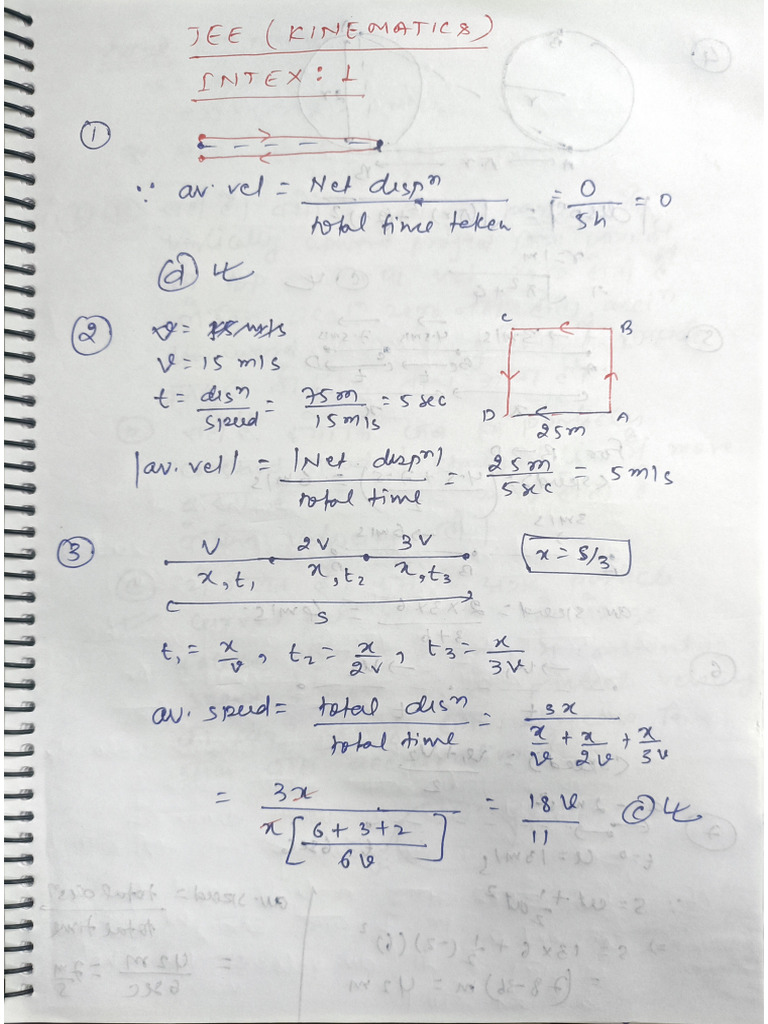 JEE (KINEMATICS)
INTEX: 1
①
∵ av. vel = Net dispⁿ / total time taken = 0 / 5h = 0
ⓓ
②
v = 15 m/s
t = disⁿ / speed = 75m / 15m/s = 5 sec
C B
D A
25m
|av. vel| = |Net dispⁿ| / total time = 25m / 5sec = 5 m/s
③ v 2v 3v
x, t₁ x, t₂ x, t₃ x = s/3
s
t₁ = x/v, t₂ = x/2v, t₃ = x/3v
av. speed = total disⁿ / total time = 3x / (x/v + x/2v + x/3v)
= 3x / x[(6+3+2)/6v] = 18v / 11 ⓒ